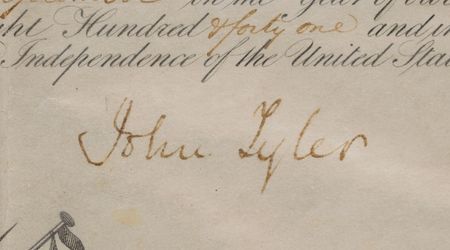 in the Year of our
ght Hundred & forty one and in
Independence of the United Sta
John Tyler